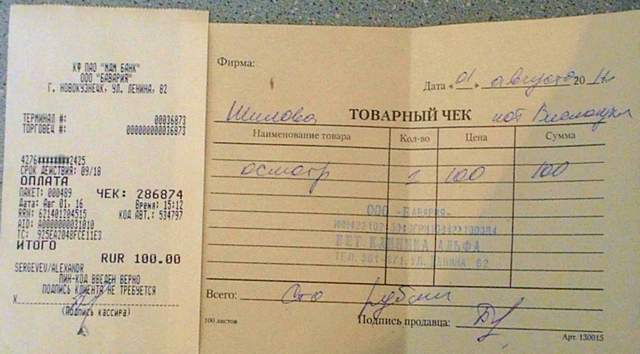 КФ ПАО "МДМ БАНК"
ООО "БАВАРИЯ"
Г. НОВОКУЗНЕЦК, УЛ. ЛЕНИНА, 82
ТЕРМИНАЛ #: 00036873
ТОРГОВЕЦ #: 000000000036873
4276********2425
СРОК ДЕЙСТВИЯ: 09/18
ОПЛАТА
ПАКЕТ: 000489 ЧЕК: 286874
Дата: Авг 01, 16 Время: 15:12
RRN: 621401204515 КОД АВТ.: 534797
AID: A0000000031010
TC: 925EA2048FCE11E3
ИТОГО
RUR 100.00
SERGEYEV/ALEXANDR
ПИН-КОД ВВЕДЕН ВЕРНО
ПОДПИСЬ КЛИЕНТА НЕ ТРЕБУЕТСЯ
X
(Подпись кассира)
Фирма:
Дата "01" августа 20
Шилова ТОВАРНЫЙ ЧЕК кот
Наименование товара Кол-во Цена Сумма
осмотр 1 100 100
ООО "БАВАРИЯ"
ВЕТ КЛИНИКА АЛЬФА
УЛ. ЛЕНИНА 82
Всего: Сто рублей
100 листов Подпись продавца:
Арт. 130015